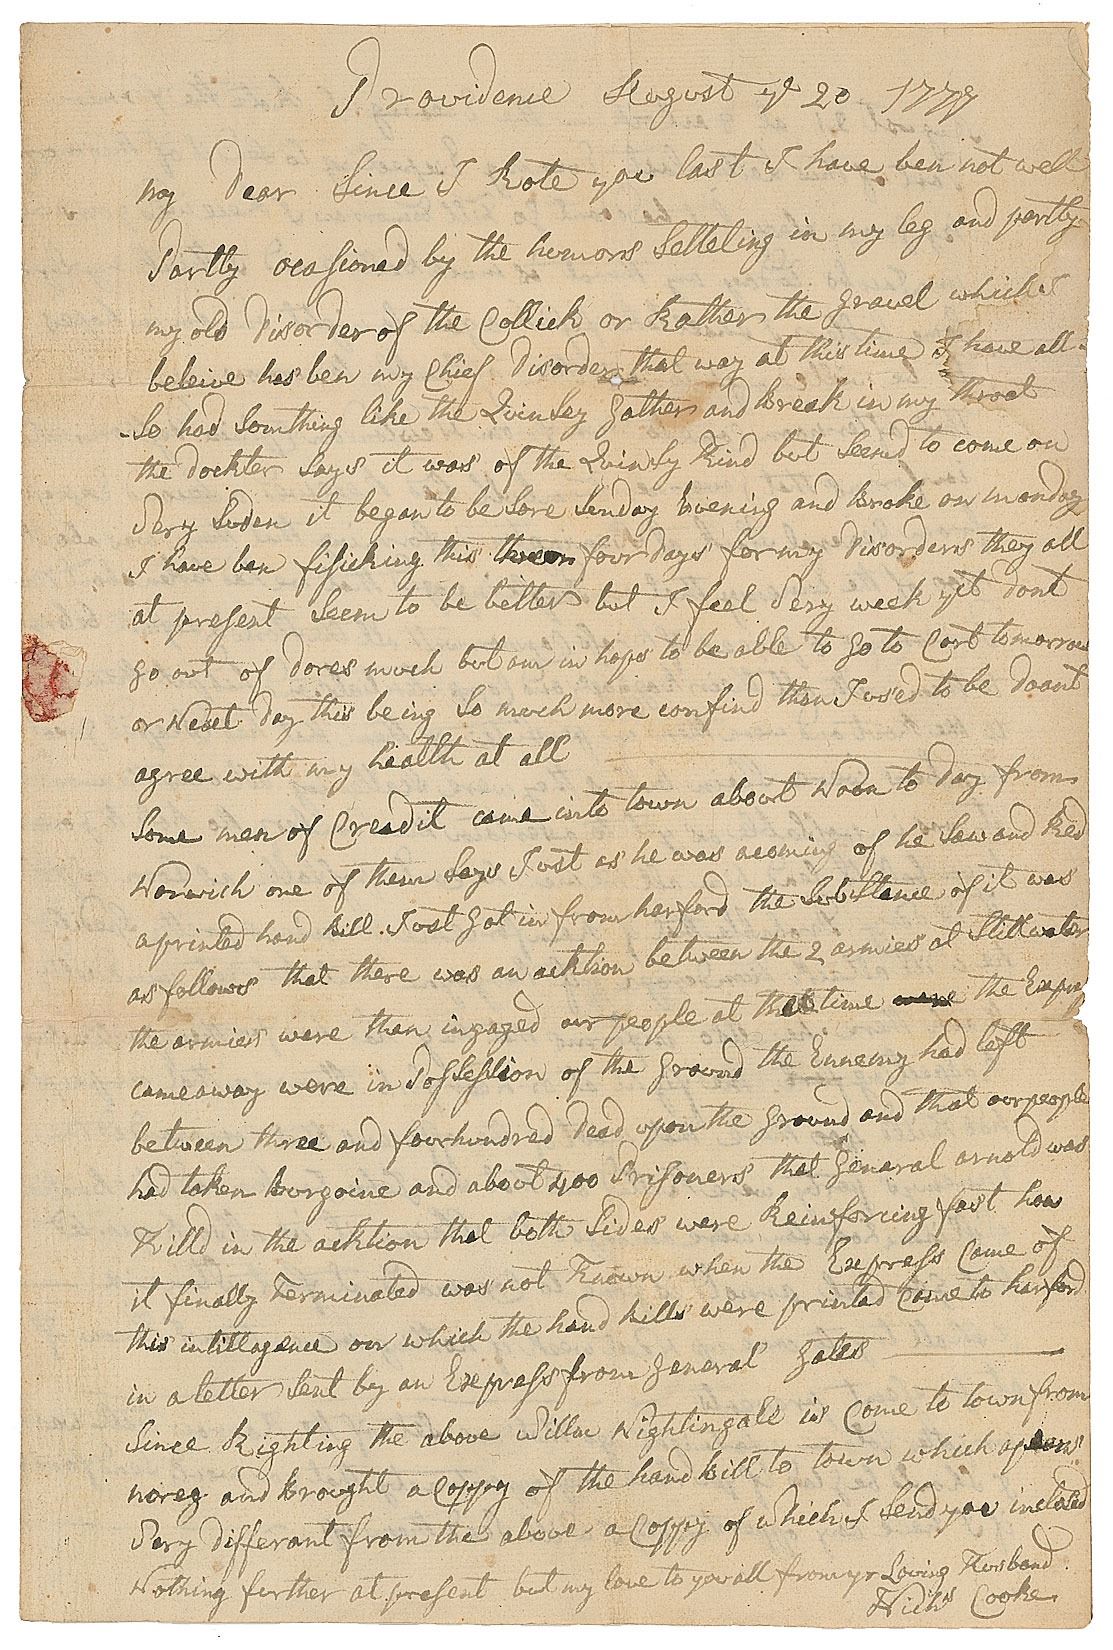 Providence August ye 20 1777
my Dear Since I Rote you last I have ben not well
Partly ocasioned by the humors Setteling in my leg and partly
my old Disorder of the Collick or Rather the gravel which I
beleive has ben my Chief Disorder that way at this time I have all-
-So had Somthing like the Quinsey gather and Break in my throat
the dockter Says it was of the Quinsy Kind but Seemd to come on
Very Suden it began to be Sore Sunday Evening and Broke on monday
I have ben fisicking this four days for my Disorders they all
at present Seem to be better but I feel Very week yit dont
go out of dores much but am in hops to be able to go to Cort tomorrow
or Next Day this being So much more confind than I used to be doant
agree with my health at all
Some men of Creadit came into town about Noon to Day from
Norwich one of them Says Just as he was acoming of he Saw and Red
a printed hand Bill Just got in from harford the Substance of it was
as follows that there was an acktion between the 2 armies at Stillwater
the armies were then ingaged our people at that time the Expres
came away were in Possession of the ground the Ennemy had left
between three and four hundred Dead upon the ground and that our people
had taken Burgoine and about 400 Prisoners that general arnold was
Killd in the acktion that both Sides were Reinforcing fast how
it finally Terminated was not Known when the Express Came of
this intillagence on which the hand Bills were printed Came to harford
in a letter Sent by an Express from general gates
Since Righting the above Willm Nightingale is Come to town from
noreg and Brought a Coppy of the hand Bill to town which apears
Very differant from the above a Coppy of which I Send you inclosed
Nothing further at present but my love to you all from yr Loving Husband
Nichs Cooke